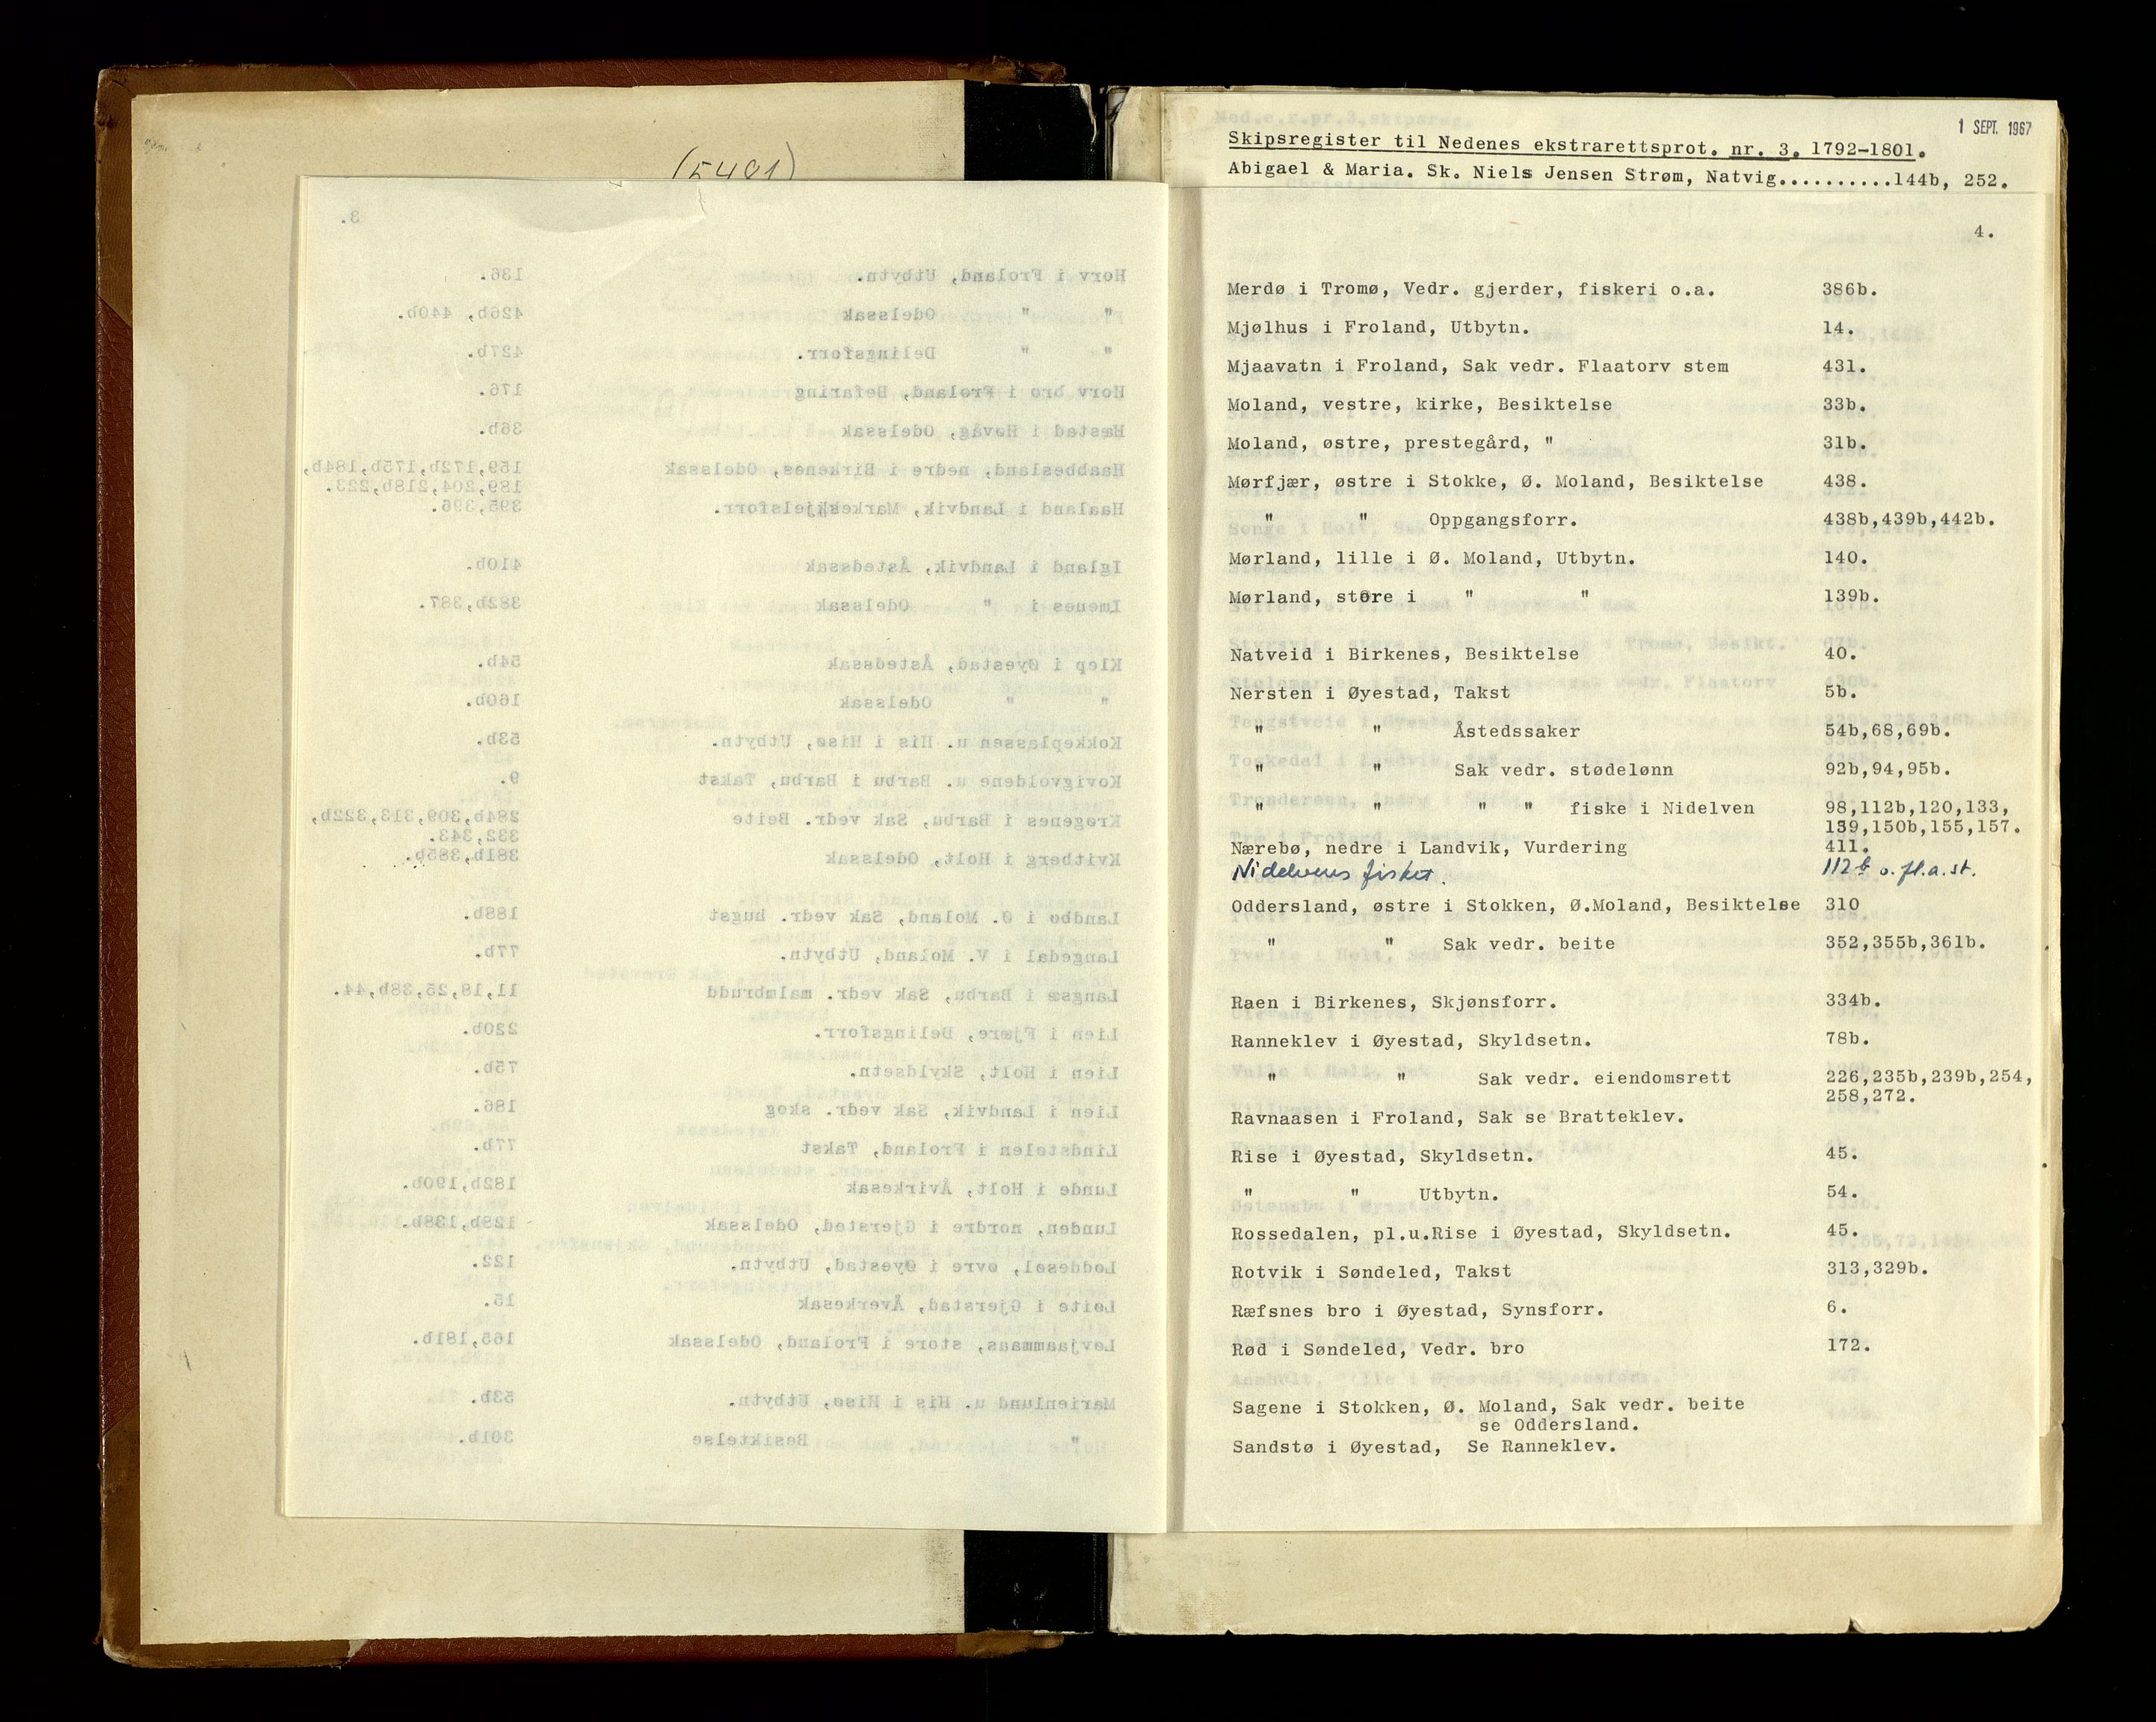 (5401)
3.
Horv i Froland, Utbytn. 136.
" " Odelssak 426b, 440b.
" " Delingsforr. 427b.
Horv bro i Froland, Befaring 176.
Hæstad i Høvåg, Odelssak 36b.
Haabbesland, nedre i Birkenes, Odelssak 159,172b,175b,184b,
189,204,218b,223.
Haaland i Landvik, Markeskjelsforr. 395,396.
Igland i Landvik, Åstedssak 410b.
Imenes i " Odelssak 382b,387.
Klep i Øyestad, Åstedssak 54b.
" " Odelssak 160b.
Kokkeplassen u. His i Hisø, Utbytn. 53b.
Kovigvoldene u. Barbu i Barbu, Takst 9.
Krøgenes i Barbu, Sak vedr. Beite 284b,309,313,322b,
332,343.
Kvitberg i Holt, Odelssak 381b,385b.
Landbø i Ø. Moland, Sak vedr. hugst 188b.
Langedal i V. Moland, Utbytn. 77b.
Langsæ i Barbu, Sak vedr. malmbrudd 11,18,25,38b,44.
Lien i Fjære, Delingsforr. 220b.
Lien i Holt, Skyldsetn. 75b.
Lien i Landvik, Sak vedr. skog 186.
Lindstølen i Froland, Takst 77b.
Lunde i Holt, Åvirkesak 182b,190b.
Lunden, nordre i Gjerstad, Odelssak 128b,138b.
Løddesøl, øvre i Øyestad, Utbytn. 122.
Løite i Gjerstad, Åverkesak 15.
Løvjaammaas, store i Froland, Odelssak 165,181b.
Marienlund u. His i Hisø, Utbytn. 53b.
" Besiktelse 301b.
1 SEPT. 1967
Skipsregister til Nedenes ekstrarettsprot. nr. 3. 1792-1801.
Abigael & Maria. Sk. Niels Jensen Strøm, Natvig..........144b, 252.
4.
Merdø i Tromø, Vedr. gjerder, fiskeri o.a. 386b.
Mjølhus i Froland, Utbytn. 14.
Mjaavatn i Froland, Sak vedr. Flaatorv stem 431.
Moland, vestre, kirke, Besiktelse 33b.
Moland, østre, prestegård, " 31b.
Mørfjær, østre i Stokke, Ø. Moland, Besiktelse 438.
" " Oppgangsforr. 438b,439b,442b.
Mørland, lille i Ø. Moland, Utbytn. 140.
Mørland, støre i " " 139b.
Natveid i Birkenes, Besiktelse 40.
Nersten i Øyestad, Takst 5b.
" " Åstedssaker 54b,68,69b.
" " Sak vedr. stødelønn 92b,94,95b.
" " " " fiske i Nidelven 98,112b,120,133,
139,150b,155,157.
Nærebø, nedre i Landvik, Vurdering 411.
Nidelvens fisket. 112b o. fl.a.st.
Oddersland, østre i Stokken, Ø.Moland, Besiktelse 310
" " Sak vedr. beite 352,355b,361b.
Raen i Birkenes, Skjønsforr. 334b.
Ranneklev i Øyestad, Skyldsetn. 78b.
" " Sak vedr. eiendomsrett 226,235b,239b,254,
258,272.
Ravnaasen i Froland, Sak se Bratteklev.
Rise i Øyestad, Skyldsetn. 45.
" " Utbytn. 54.
Rossedalen, pl.u.Rise i Øyestad, Skyldsetn. 45.
Rotvik i Søndeled, Takst 313,329b.
Ræfsnes bro i Øyestad, Synsforr. 6.
Rød i Søndeled, Vedr. bro 172.
Sagene i Stokken, Ø. Moland, Sak vedr. beite
se Oddersland.
Sandstø i Øyestad, Se Ranneklev.